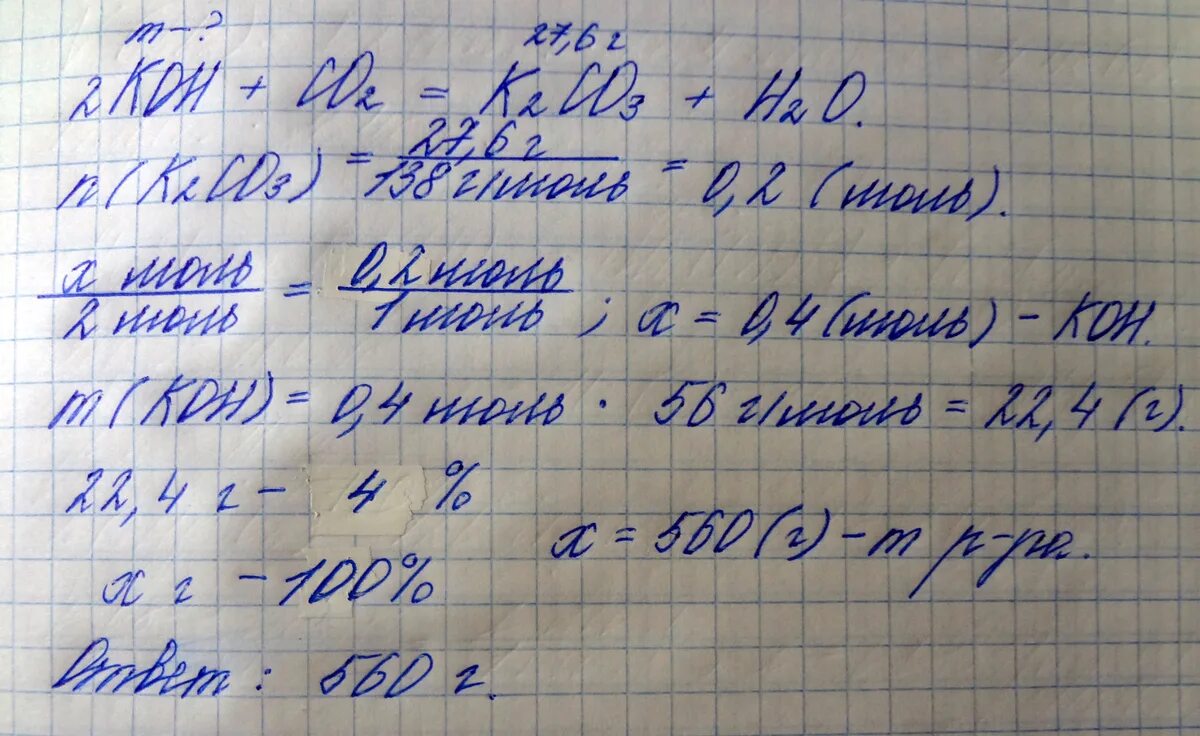 m-? 27,6 г
2KOH + CO2 = K2CO3 + H2O.
n(K2CO3) = 27,6 г / 138 г/моль = 0,2 (моль).
x моль / 2 моль = 0,2 моль / 1 моль ; x = 0,4 (моль) - KOH.
m(KOH) = 0,4 моль · 56 г/моль = 22,4 (г).
22,4 г - 4 %
x = 560 (г) - m р-ра.
x г - 100%
Ответ: 560 г.